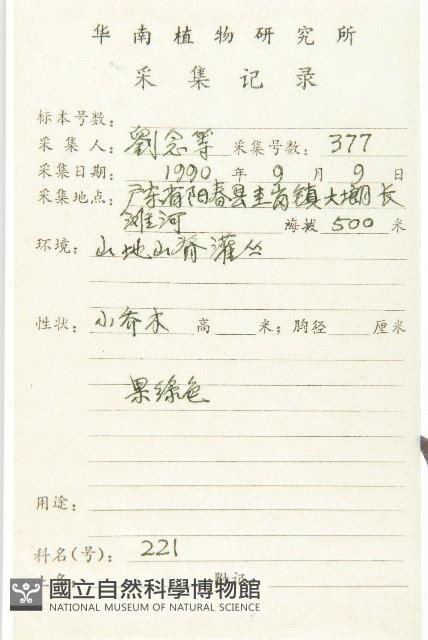 华南植物研究所
采集记录
标本号数:
采集人: 劉念等 采集号数: 377
采集日期: 1990 年 9 月 9 日
采集地点: 广东省阳春县圭岗镇大塱长
滩河 海拔 500 米
环境: 山地山脊灌丛
性状: 小乔木 高 米; 胸径 厘米
果绿色
用途:
科名(号): 221
土名: 附记
國立自然科學博物館
NATIONAL MUSEUM OF NATURAL SCIENCE